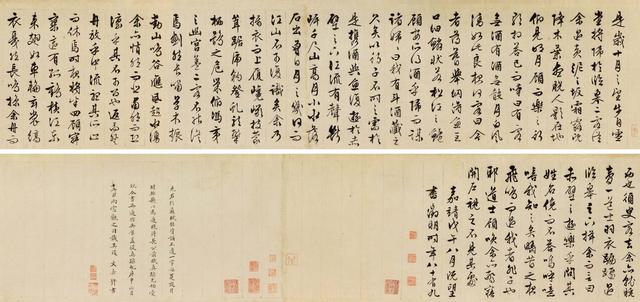 是歲十月之望步自雪
堂將歸於臨皋二客從
余過黃泥之坂霜露既
降木葉盡脫人影在地
仰見明月顧而樂之
行歌相答已而歎曰有客
無酒有酒無肴月白風
清如此良夜何客曰今
者薄莫舉網得魚巨
口細鱗狀如松江之鱸
顧安所得酒乎歸而謀
諸婦婦曰我有斗酒藏之
久矣以待子不時之需於
是攜酒與魚復遊於赤
壁之下江流有聲斷
岸千尺山高月小水落
石出曾日月之幾何而
江山不可復識矣余乃
攝衣而上履巉巖披蒙
茸踞虎豹登虬龍攀
栖鶻之危巢俯馮夷
之幽宮蓋二客不能從
焉劃然長嘯草木振
動山鳴谷應風起水涌
余亦悄然而悲肅然而恐
凜乎其不可留也返而登
舟放乎中流聽其所止
而休焉時夜將半四顧
寂寥適有孤鶴橫江
東來翅如車輪玄裳縞
衣戛然長鳴掠余舟而
西也須臾客去余亦就睡
夢一道士羽衣蹁躚過
臨皋之下揖余而言曰
赤壁之遊樂乎問其
姓名俛而不答嗚呼噫
嘻我知之矣疇昔之夜
飛鳴而過我者非子也
耶道士顧笑余亦驚寤
開戶視之不見其處
嘉靖戊午八月既望
書徵明時年八十有九